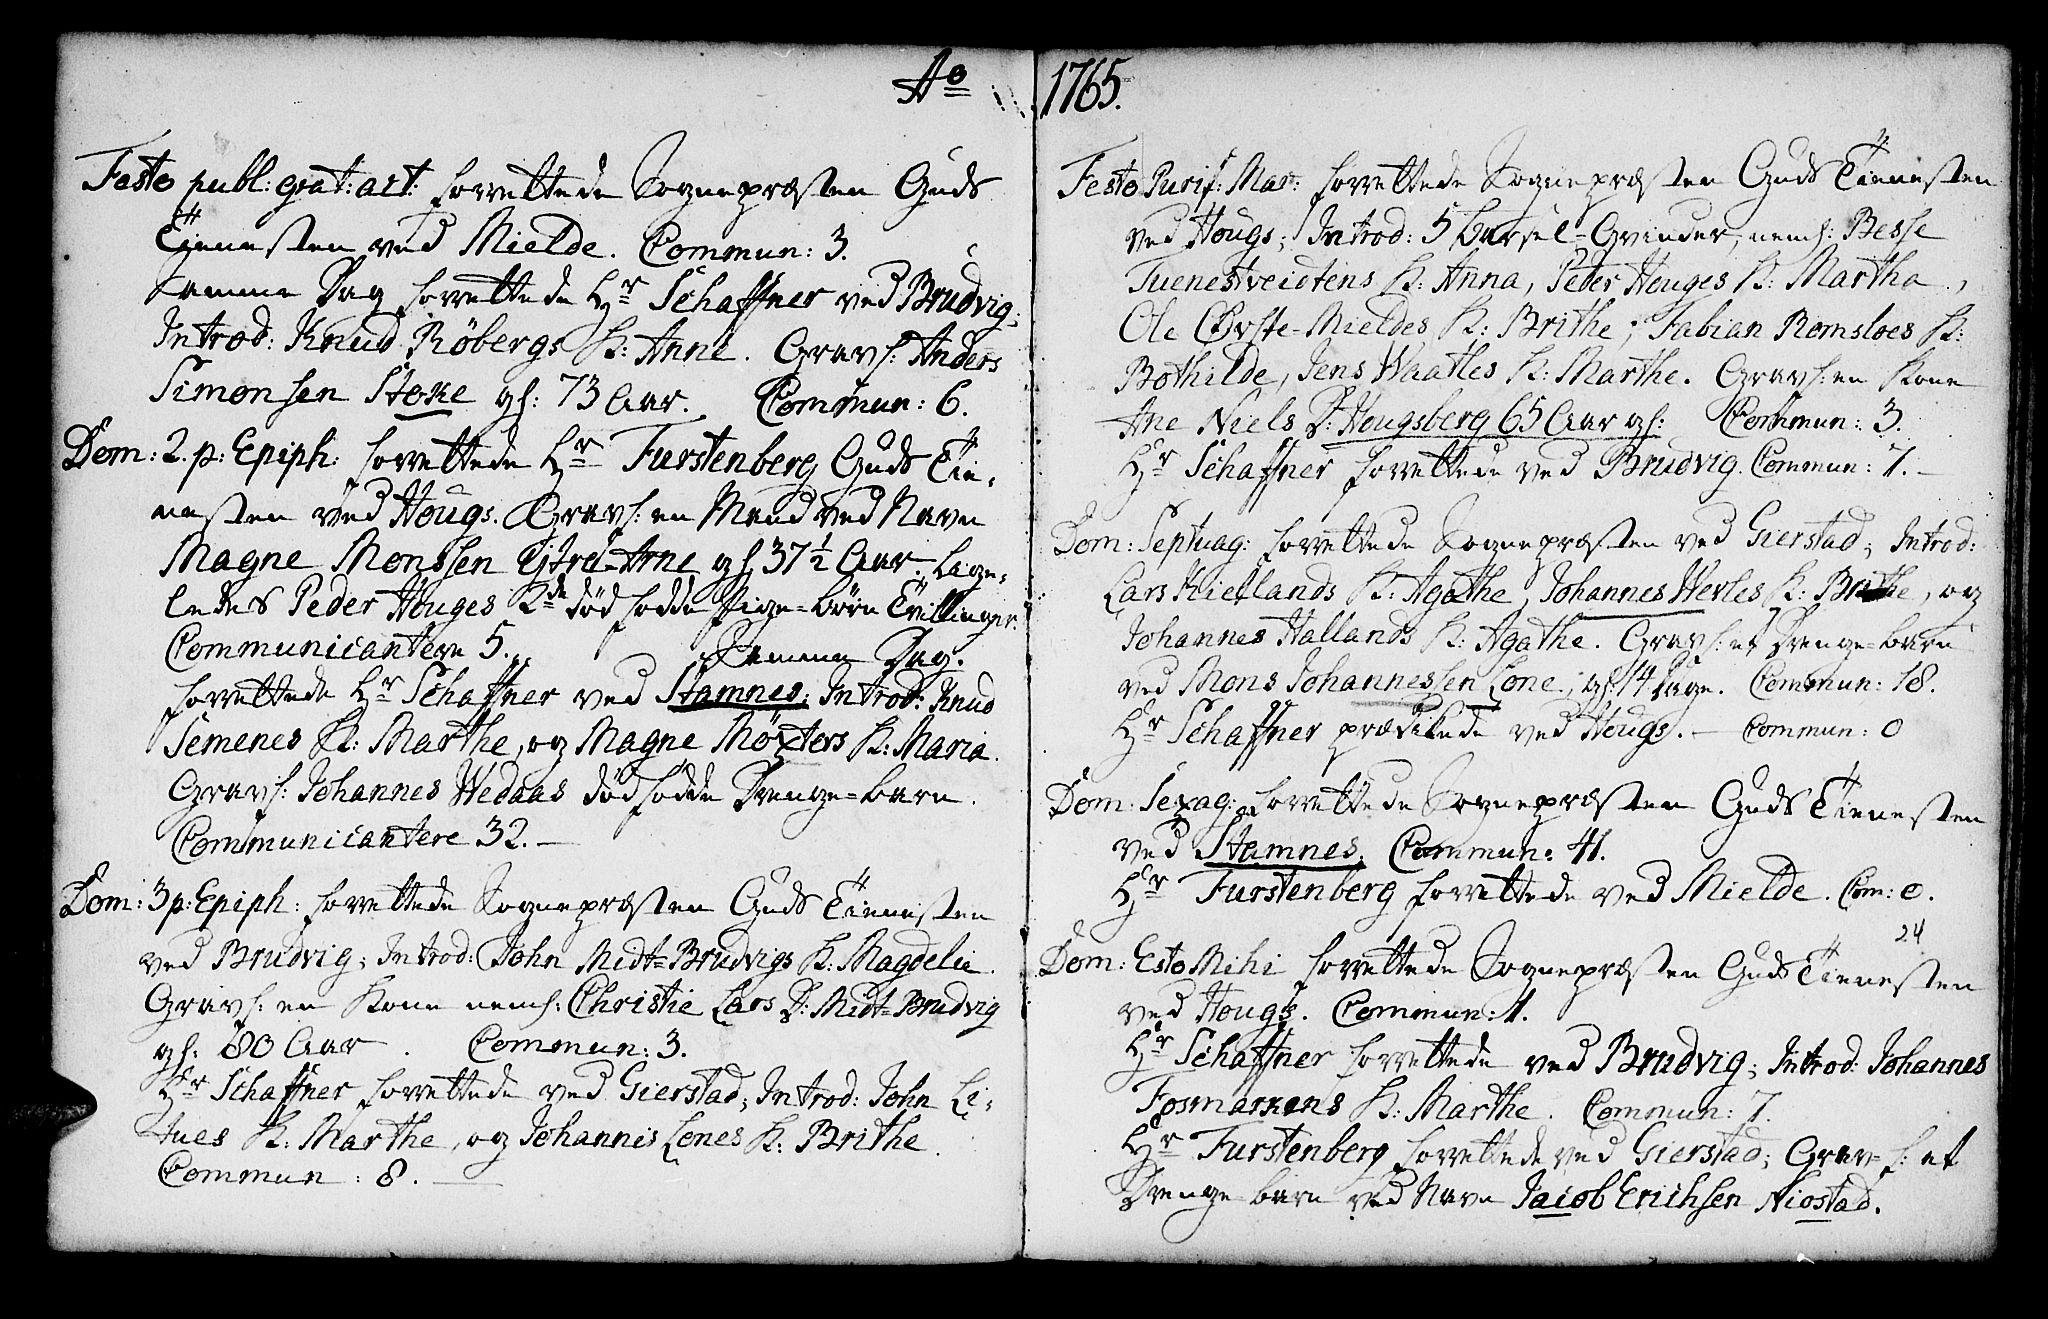 Ao 1765.
Festo publ: grat: act: forrettede Sognepræsten Guds
Tienesten ved Mielde. Commun: 3.
Samme Dag forrettede Hr Schaffner ved Brudvig;
Introd: Knud Röbergs K: Anne. Gravf: Anders
Simonsen Stoke gl: 73 Aar. Commun: 6.
Dom: 2. p: Epiph: forrettede Hr Furstenberg Guds Tie-
nesten ved Hougs. Gravf: en Mand ved Navn
Magne Monssen Ytre-Arne gl 37½ Aar. Lige-
ledes Peder Houges 2de død fødde Pige-børn Tvillinger.
Communicantere 5. Samme Dag.
forrettede Hr Schaffner ved Stamnes; Introd: Knud
Semenes K: Marthe, og Magne Møxters K: Maria.
Gravf: Johannes Wedaas dödfödde Drenge-barn.
Communicantere 32.
Dom: 3 p: Epiph: forrettede Sognepræsten Guds Tienesten
ved Brudvig; Introd: John Midt-Brudvigs K: Magdelie.
Gravf: en Kone neml: Christie Lars D: Midt-Brudvig
gl: 80 Aar. Commun: 3.
Hr Schaffner forrettede ved Gierstad; Introd: John Li-
K: Marthe, og Johannis Lones K: Brithe.
Commun: 8.
Festo Purif: Mar: forrettede Sognepræsten Guds Tienesten
ved Hougs; Introd: 5 Barsel-Qvinder, neml: Besse
Tuenestveidtens K: Anna, Peter Houges K: Martha,
Ole Øvste-Mieldes K: Brithe, Fabian Romsloes K:
Bothilde, Jens Waatles K: Marthe. Gravf: en Kone
Ane Niels D: Hougsberg 65 Aar gl: Commun: 3.
Hr Schaffner forrettede ved Brudvig. Commun: 7.
Dom: Septuag: forrettede Sognepræsten ved Gierstad; Introd:
Lars Kietlands K: Agathe, Johannes Herles K: Brithe, og
Johannes Hallands K: Agathe. Gravf: et Drenge-barn
ved Mons Johannessen Lone, gl: 14 Dage. Commun: 18.
Hr Schaffner prædikede ved Hougs. Commun: 0
Dom: Sexag: forrettede Sognepræsten Guds Tienesten
ved Stamnes. Commun: 41.
Hr Furstenberg forrettede ved Mielde. Com: 0.
24
Dom: Esto Mihi forrettede Sognepræsten Guds Tienesten
ved Hougs. Commun: 1.
Hr Schaffner forrettede ved Brudvig; Introd: Johannes
Fosmarkens K: Marthe. Commun: 7.
Hr Furstenberg forrettede ved Gierstad; Gravf: et
Drenge barn ved Navn Jacob Erichsen Niostad.